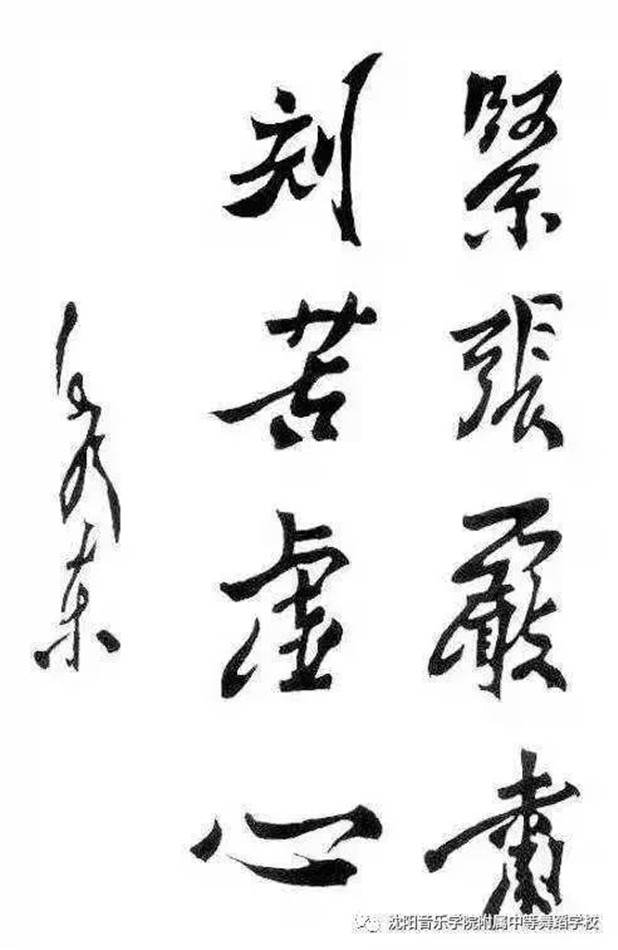 緊張嚴肅
刻苦虛心
毛泽东
沈阳音乐学院附属中等舞蹈学校